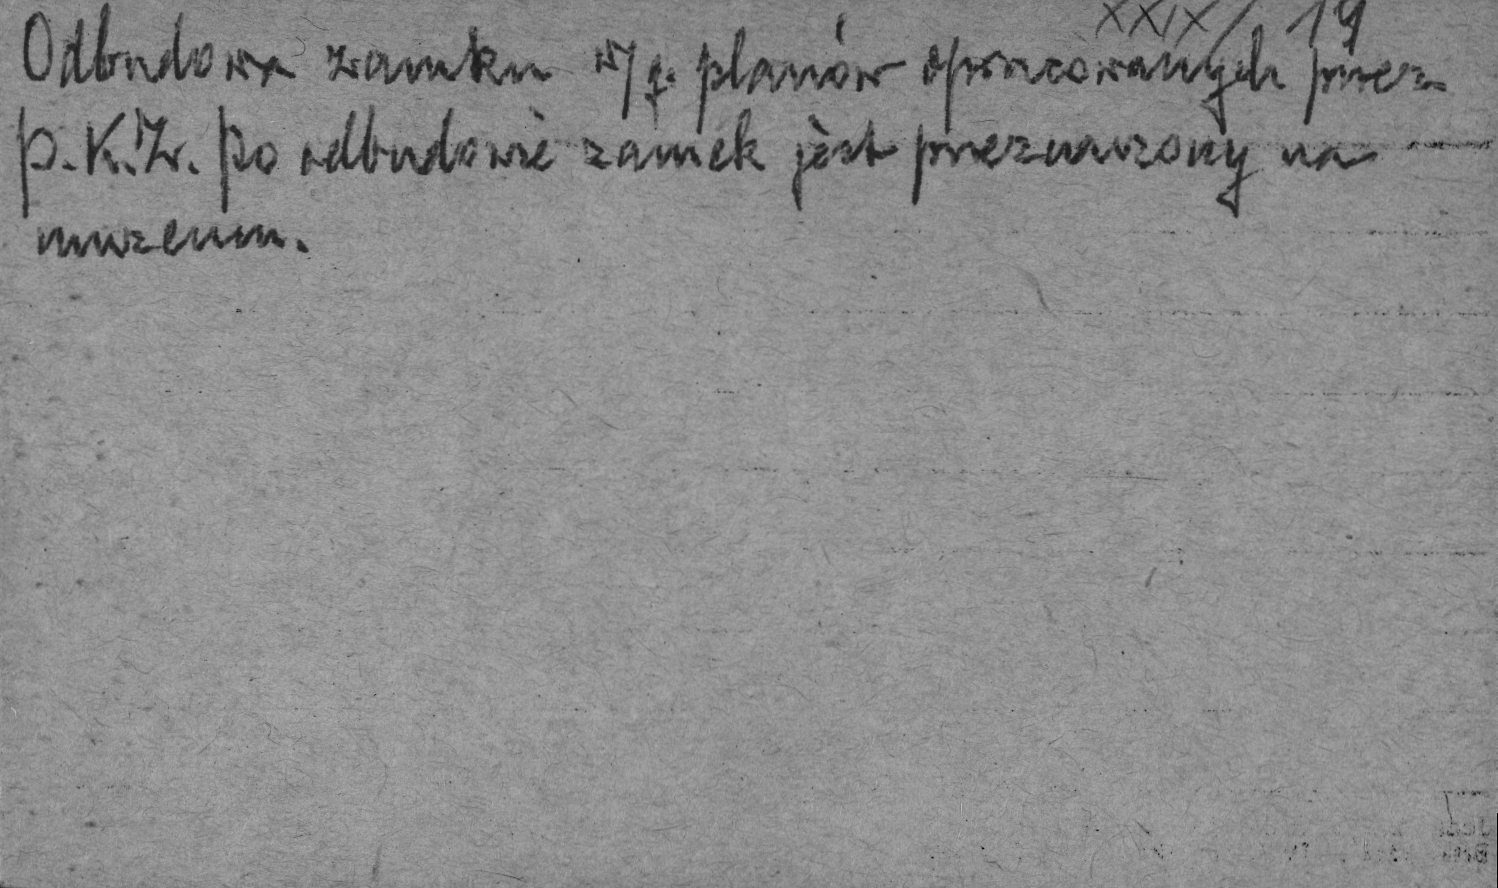 XXIX/ 19
Odbudowa zamku w/g. planów opracowanych przez
P.K.Z. Po odbudowie zamek jest przeznaczony na
muzeum.